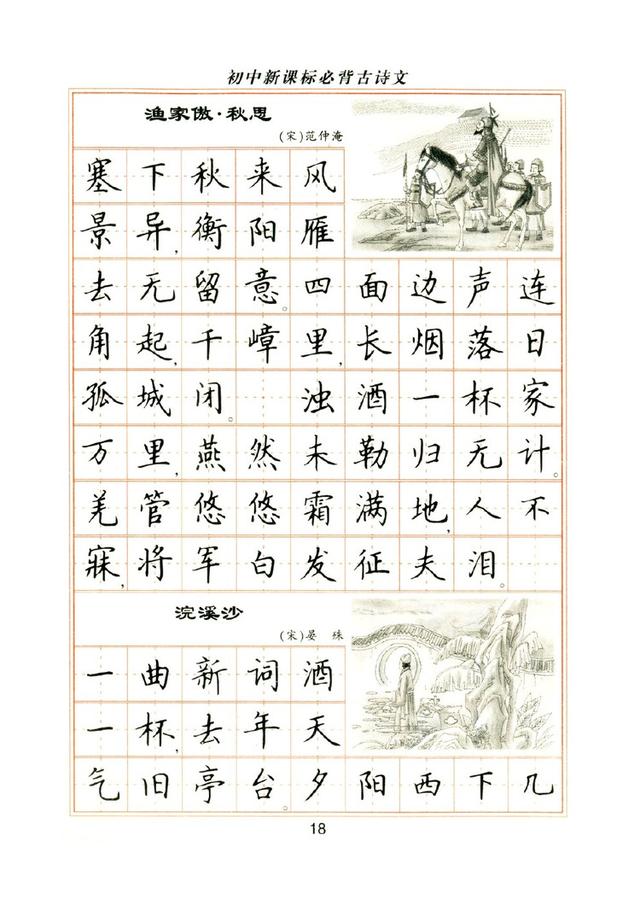 初中新课标必背古诗文
渔家傲·秋思
(宋)范仲淹
塞下秋来风
景异,衡阳雁
去无留意。四面边声连
角起,千嶂里,长烟落日
孤城闭。 浊酒一杯家
万里,燕然未勒归无计。
羌管悠悠霜满地,人不
寐,将军白发征夫泪。
浣溪沙
(宋)晏 殊
一曲新词酒
一杯,去年天
气旧亭台。夕阳西下几
18